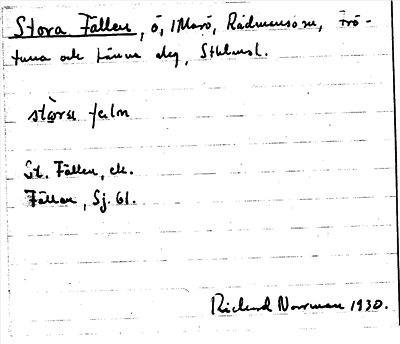 Stora Fällen, ö, i Marö, Rådmansö sn, Frö-
tuna och Länna slg, Sthlmsl.
stòra felǝn
St. Fällen, ek.
Fällan, Sj. 61.
Rickard Norrman 1930.